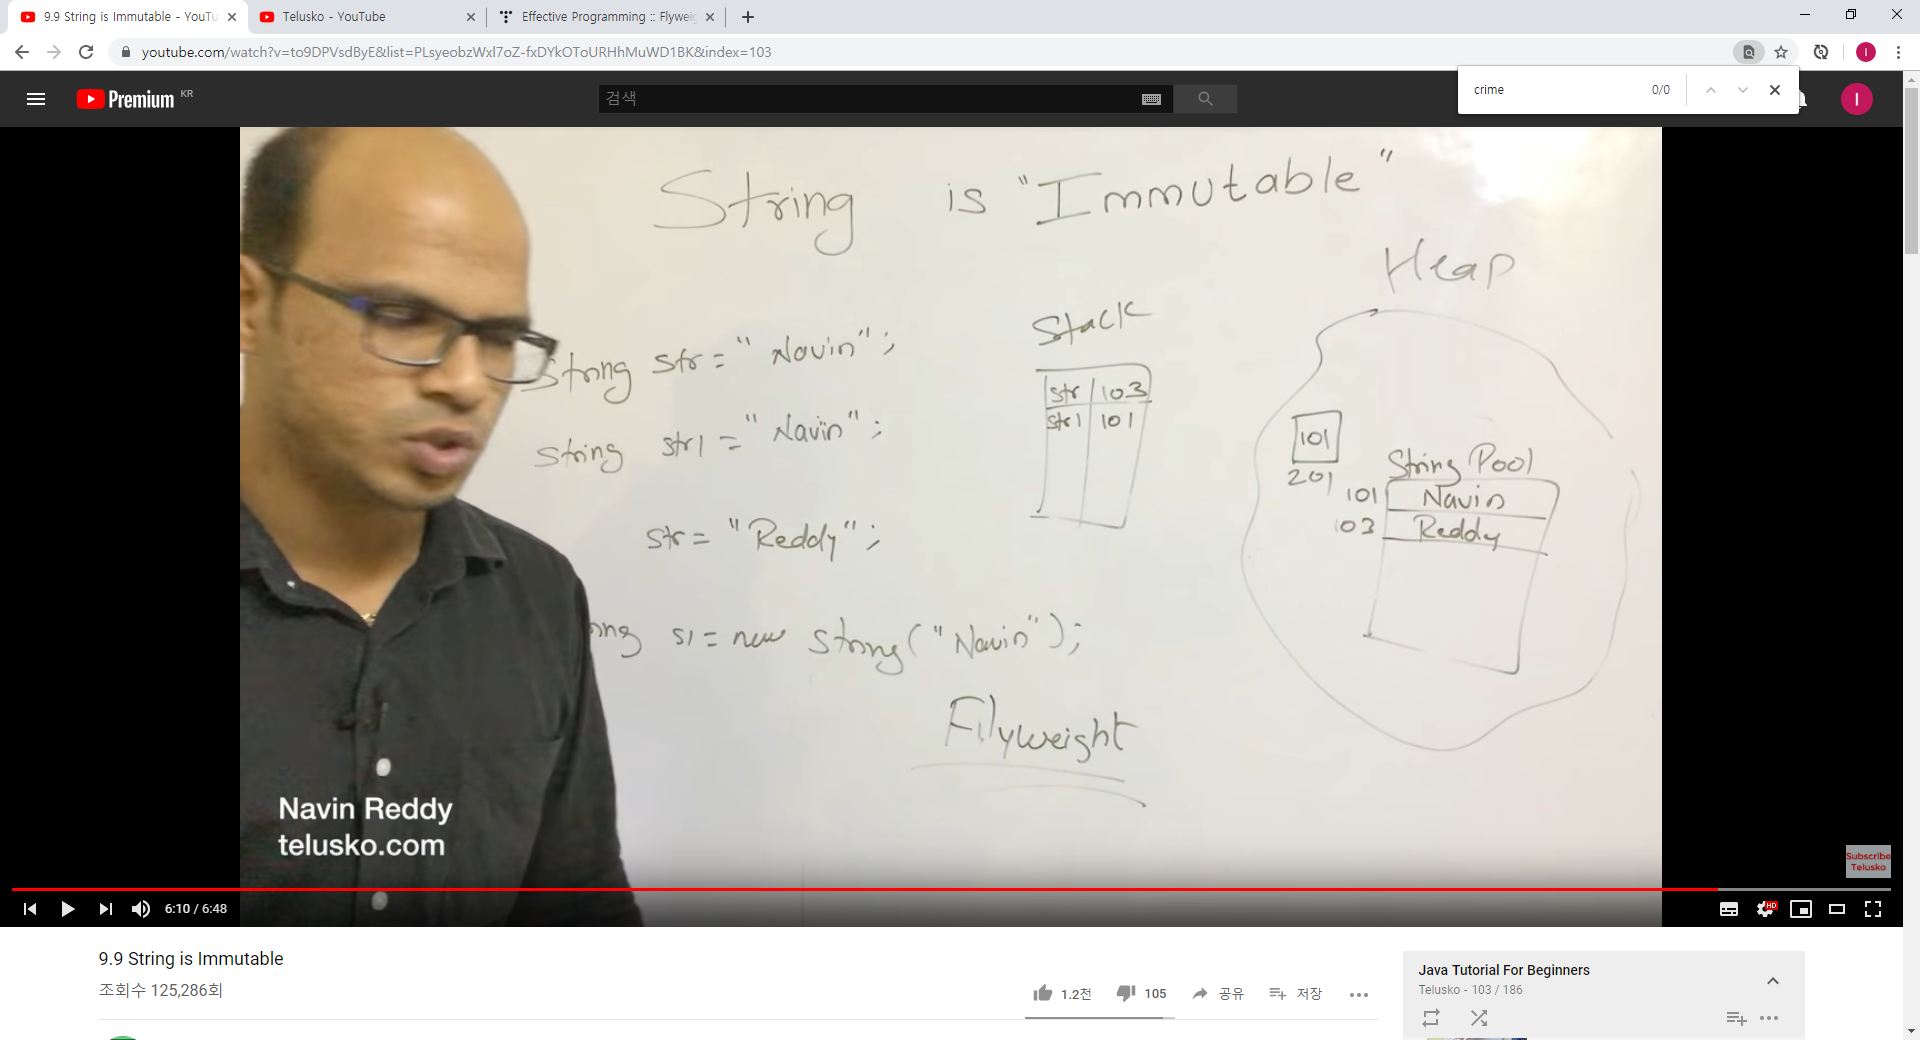 9.9 String is Immutable - YouTu
Telusko - YouTube
Effective Programming :: Flywei
youtube.com/watch?v=to9DPVsdByE&list=PLsyeobzWxl7oZ-fxDYkOToURHhMuWD1BK&index=103
I
crime 0/0
Premium KR
검색
I
String is "Immutable"
Heap
Stack
String str = "Navin";
str 103
str1 101
String str1 = "Navin";
101
201
String Pool
101 Navin
103 Reddy
str = "Reddy";
s1 = new String("Navin");
Flyweight
Navin Reddy
telusko.com
Subscribe
Telusko
6:10 / 6:48
HD
9.9 String is Immutable
조회수 125,286회
1.2천
105
공유
저장
Java Tutorial For Beginners
Telusko - 103 / 186